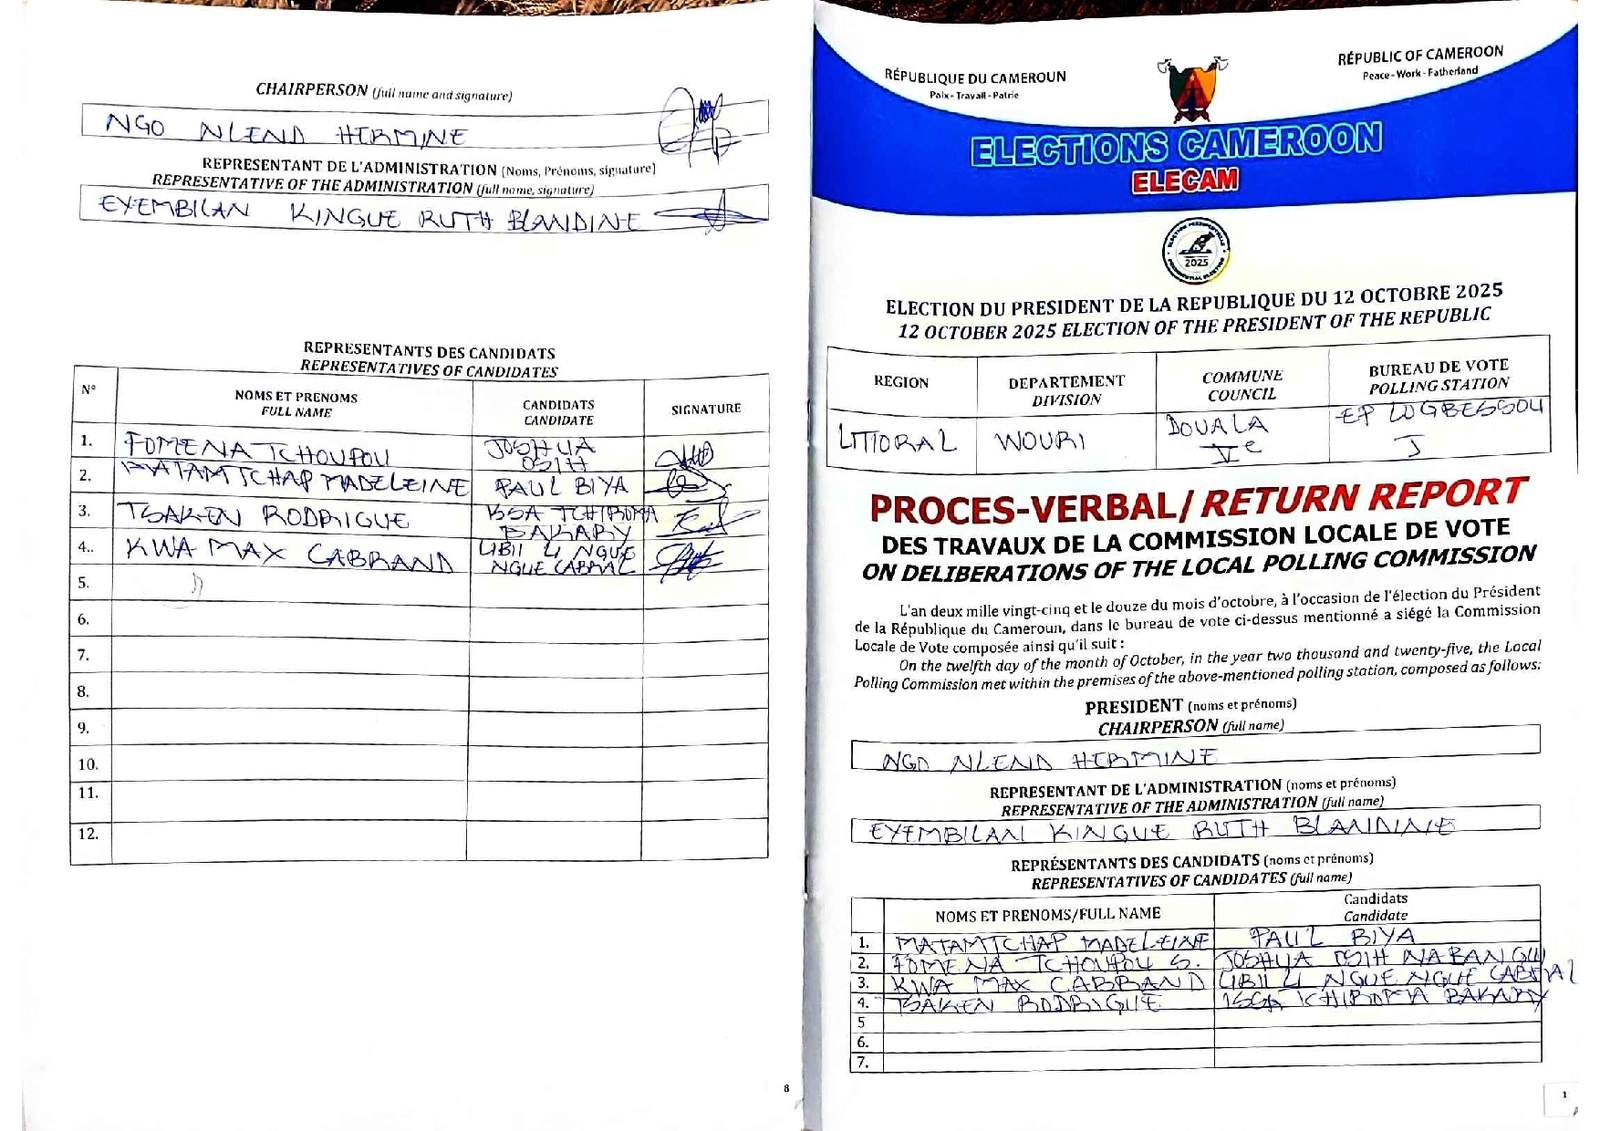 CHAIRPERSON (full name and signature)
NGO NLEND HERMINE
REPRESENTANT DE L'ADMINISTRATION (Noms, Prénoms, signature)
REPRESENTATIVE OF THE ADMINISTRATION (full name, signature)
EYEMBILAN KINGUE RUTH BLANDINE
REPRESENTANTS DES CANDIDATS
REPRESENTATIVES OF CANDIDATES
N° NOMS ET PRENOMS FULL NAME CANDIDATS CANDIDATE SIGNATURE
1. FOMENA TCHOUPOU JOSHUA OSIH
2. MATAMTCHAP MADELEINE PAUL BIYA
3. TSAKEN RODRIGUE ISSA TCHIROMA BAKARY
4.. KWA MAX CABRAND LIBII LI NGUE NGUE CABRAL
5.
6.
7.
8.
9.
10.
11.
12.
8
RÉPUBLIQUE DU CAMEROUN
Paix - Travail - Patrie
RÉPUBLIC OF CAMEROON
Peace - Work - Fatherland
ELECTIONS CAMEROON
ELECAM
2025
ELECTION DU PRESIDENT DE LA REPUBLIQUE DU 12 OCTOBRE 2025
12 OCTOBER 2025 ELECTION OF THE PRESIDENT OF THE REPUBLIC
REGION DEPARTEMENT DIVISION COMMUNE COUNCIL BUREAU DE VOTE POLLING STATION
LITTORAL WOURI DOUALA Ve EP LOGBESSOU J
PROCES-VERBAL/ RETURN REPORT
DES TRAVAUX DE LA COMMISSION LOCALE DE VOTE
ON DELIBERATIONS OF THE LOCAL POLLING COMMISSION
L'an deux mille vingt-cinq et le douze du mois d'octobre, à l'occasion de l'élection du Président
de la République du Cameroun, dans le bureau de vote ci-dessus mentionné a siégé la Commission
Locale de Vote composée ainsi qu'il suit :
On the twelfth day of the month of October, in the year two thousand and twenty-five, the Local
Polling Commission met within the premises of the above-mentioned polling station, composed as follows:
PRESIDENT (noms et prénoms)
CHAIRPERSON (full name)
NGO NLEND HERMINE
REPRESENTANT DE L'ADMINISTRATION (noms et prénoms)
REPRESENTATIVE OF THE ADMINISTRATION (full name)
EYEMBILAN KINGUE RUTH BLANDINE
REPRÉSENTANTS DES CANDIDATS (noms et prénoms)
REPRESENTATIVES OF CANDIDATES (full name)
NOMS ET PRENOMS/FULL NAME Candidats Candidate
1. MATAMTCHAP MADELEINE PAUL BIYA
2. FOMENA TCHOUPOU S. JOSHUA OSIH NABANGU
3. KWA MAX CABRAND LIBII LI NGUE NGUE CABRAL
4. TSAKEN RODRIGUE ISSA TCHIROMA BAKARY
5
6.
7.
1